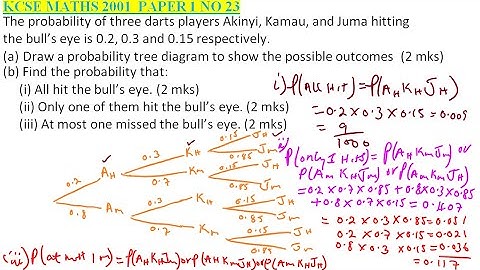 KCSE MATHS 2001 PAPER 1 NO 23
The probability of three darts players Akinyi, Kamau, and Juma hitting
the bull's eye is 0.2, 0.3 and 0.15 respectively.
(a) Draw a probability tree diagram to show the possible outcomes (2 mks)
(b) Find the probability that:
(i) All hit the bull's eye. (2 mks)
(ii) Only one of them hit the bull's eye. (2 mks)
(iii) At most one missed the bull's eye. (2 mks)
i) P(All Hit) = P(AH KH JH)
= 0.2 × 0.3 × 0.15 = 0.009
= 9/1000
ii) P(only 1 Hits) = P(AH Km Jm) or
P(Am KH Jm) or P(Am Km JH)
= 0.2 × 0.7 × 0.85 + 0.8×0.3×0.85
+ 0.8 × 0.7 × 0.15 = 0.407
= 0.2 × 0.3 × 0.85 = 0.051
0.2 × 0.7 × 0.15 = 0.021
0.8 × 0.3 × 0.15 = 0.036
= 0.117
0.2 AH
0.8 Am
0.3 KH
0.7 Km
0.3 KH
0.7 Km
0.15 JH
0.85 Jm
0.15 JH
0.85 Jm
0.15 JH
0.85 Jm
0.15 JH
0.85 Jm
iii) P(at most 1 m) = P(AH KH Jm) or P(AH Km JH) or P(Am KH JH)